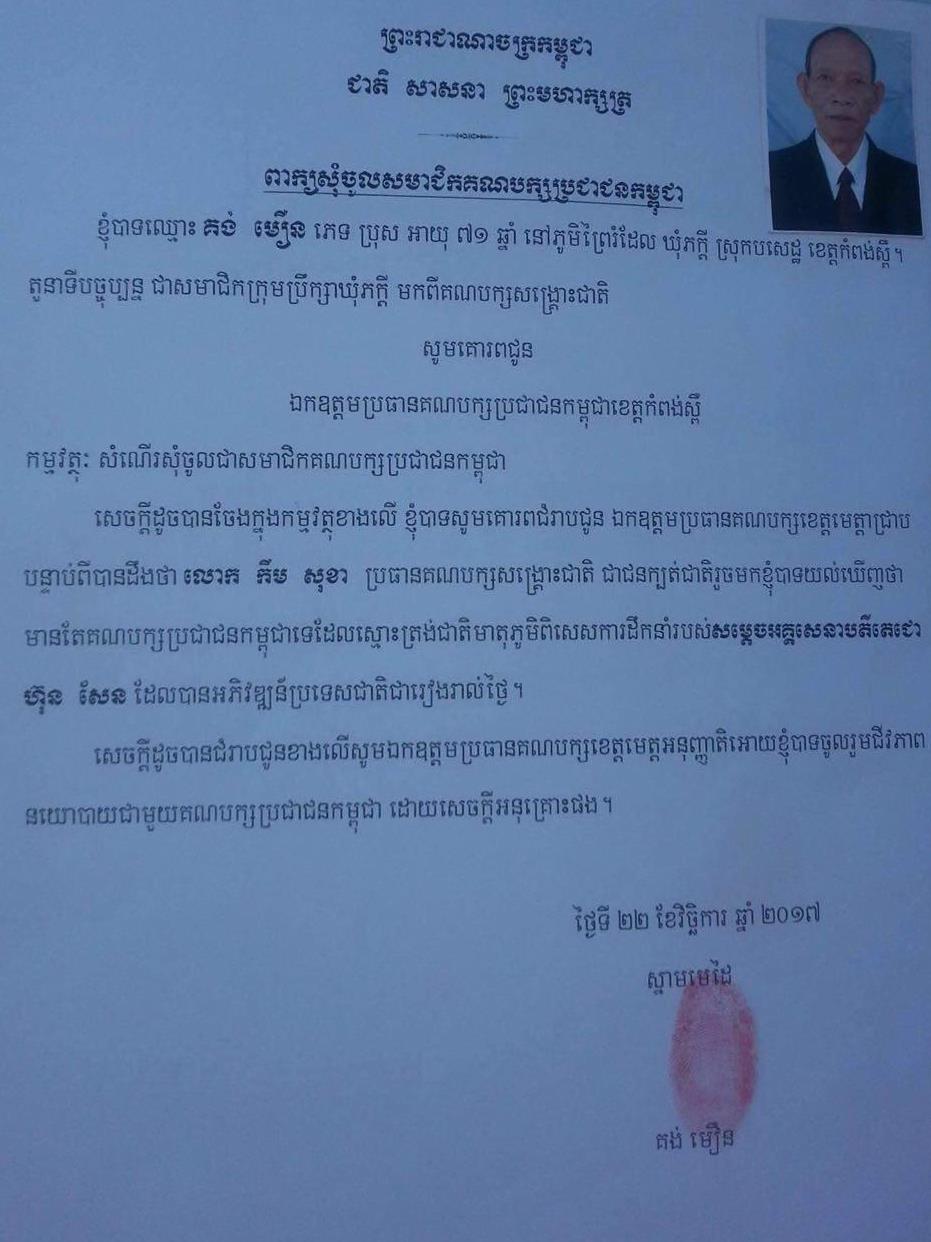 ព្រះរាជាណាចក្រកម្ពុជា
ជាតិ សាសនា ព្រះមហាក្សត្រ
ពាក្យសុំចូលសមាជិកគណបក្សប្រជាជនកម្ពុជា
ខ្ញុំបាទឈ្មោះ គង់ មឿន ភេទ ប្រុស អាយុ ៧១ ឆ្នាំ នៅភូមិព្រៃរំដែល ឃុំភក្តី ស្រុកបរសេដ្ឋ ខេត្តកំពង់ស្ពឺ។
តួនាទីបច្ចុប្បន្ន ជាសមាជិកក្រុមប្រឹក្សាឃុំភក្តី មកពីគណបក្សសង្គ្រោះជាតិ
សូមគោរពជូន
ឯកឧត្តមប្រធានគណបក្សប្រជាជនកម្ពុជាខេត្តកំពង់ស្ពឺ
កម្មវត្ថុៈ សំណើរសុំចូលជាសមាជិកគណបក្សប្រជាជនកម្ពុជា
សេចក្តីដូចបានចែងក្នុងកម្មវត្ថុខាងលើ ខ្ញុំបាទសូមគោរពជំរាបជូន ឯកឧត្តមប្រធានគណបក្សខេត្តមេត្តាជ្រាប
បន្ទាប់ពីបានដឹងថា លោក កឹម សុខា ប្រធានគណបក្សសង្គ្រោះជាតិ ជាជនក្បត់ជាតិរួចមកខ្ញុំបាទយល់ឃើញថា
មានតែគណបក្សប្រជាជនកម្ពុជាទេដែលស្មោះត្រង់ជាតិមាតុភូមិពិសេសការដឹកនាំរបស់សម្តេចអគ្គសេនាបតីតេជោ
ហ៊ុន សែន ដែលបានអភិវឌ្ឍន៍ប្រទេសជាតិជារៀងរាល់ថ្ងៃ។
សេចក្តីដូចបានជំរាបជូនខាងលើសូមឯកឧត្តមប្រធានគណបក្សខេត្តមេត្តអនុញ្ញាតិអោយខ្ញុំបាទចូលរួមជីវភាព
នយោបាយជាមួយគណបក្សប្រជាជនកម្ពុជា ដោយសេចក្តីអនុគ្រោះផង។
ថ្ងៃទី ២២ ខែវិច្ឆិការ ឆ្នាំ ២០១៧
ស្នាមមេដៃ
គង់ មឿន